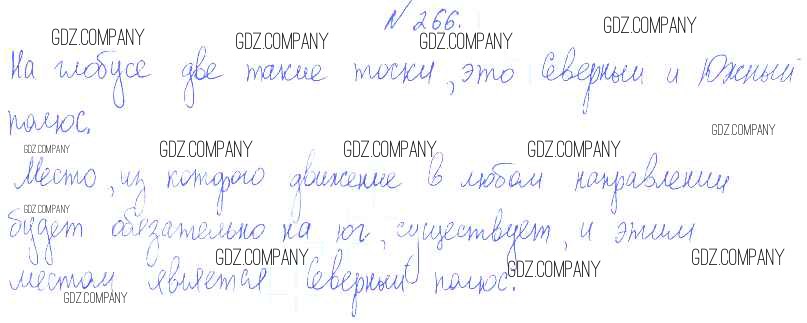 № 266.
GDZ.COMPANY GDZ.COMPANY GDZ.COMPANY GDZ.COMPANY
На глобусе две такие точки, это Северный и Южный
полюс.
GDZ.COMPANY
GDZ.COMPANY GDZ.COMPANY GDZ.COMPANY GDZ.COMPANY
Место, из которого движение в любом направлении
GDZ.COMPANY
будет обязательно на юг, существует, и этим
GDZ.COMPANY GDZ.COMPANY GDZ.COMPANY
местом является Северный полюс.
GDZ.COMPANY